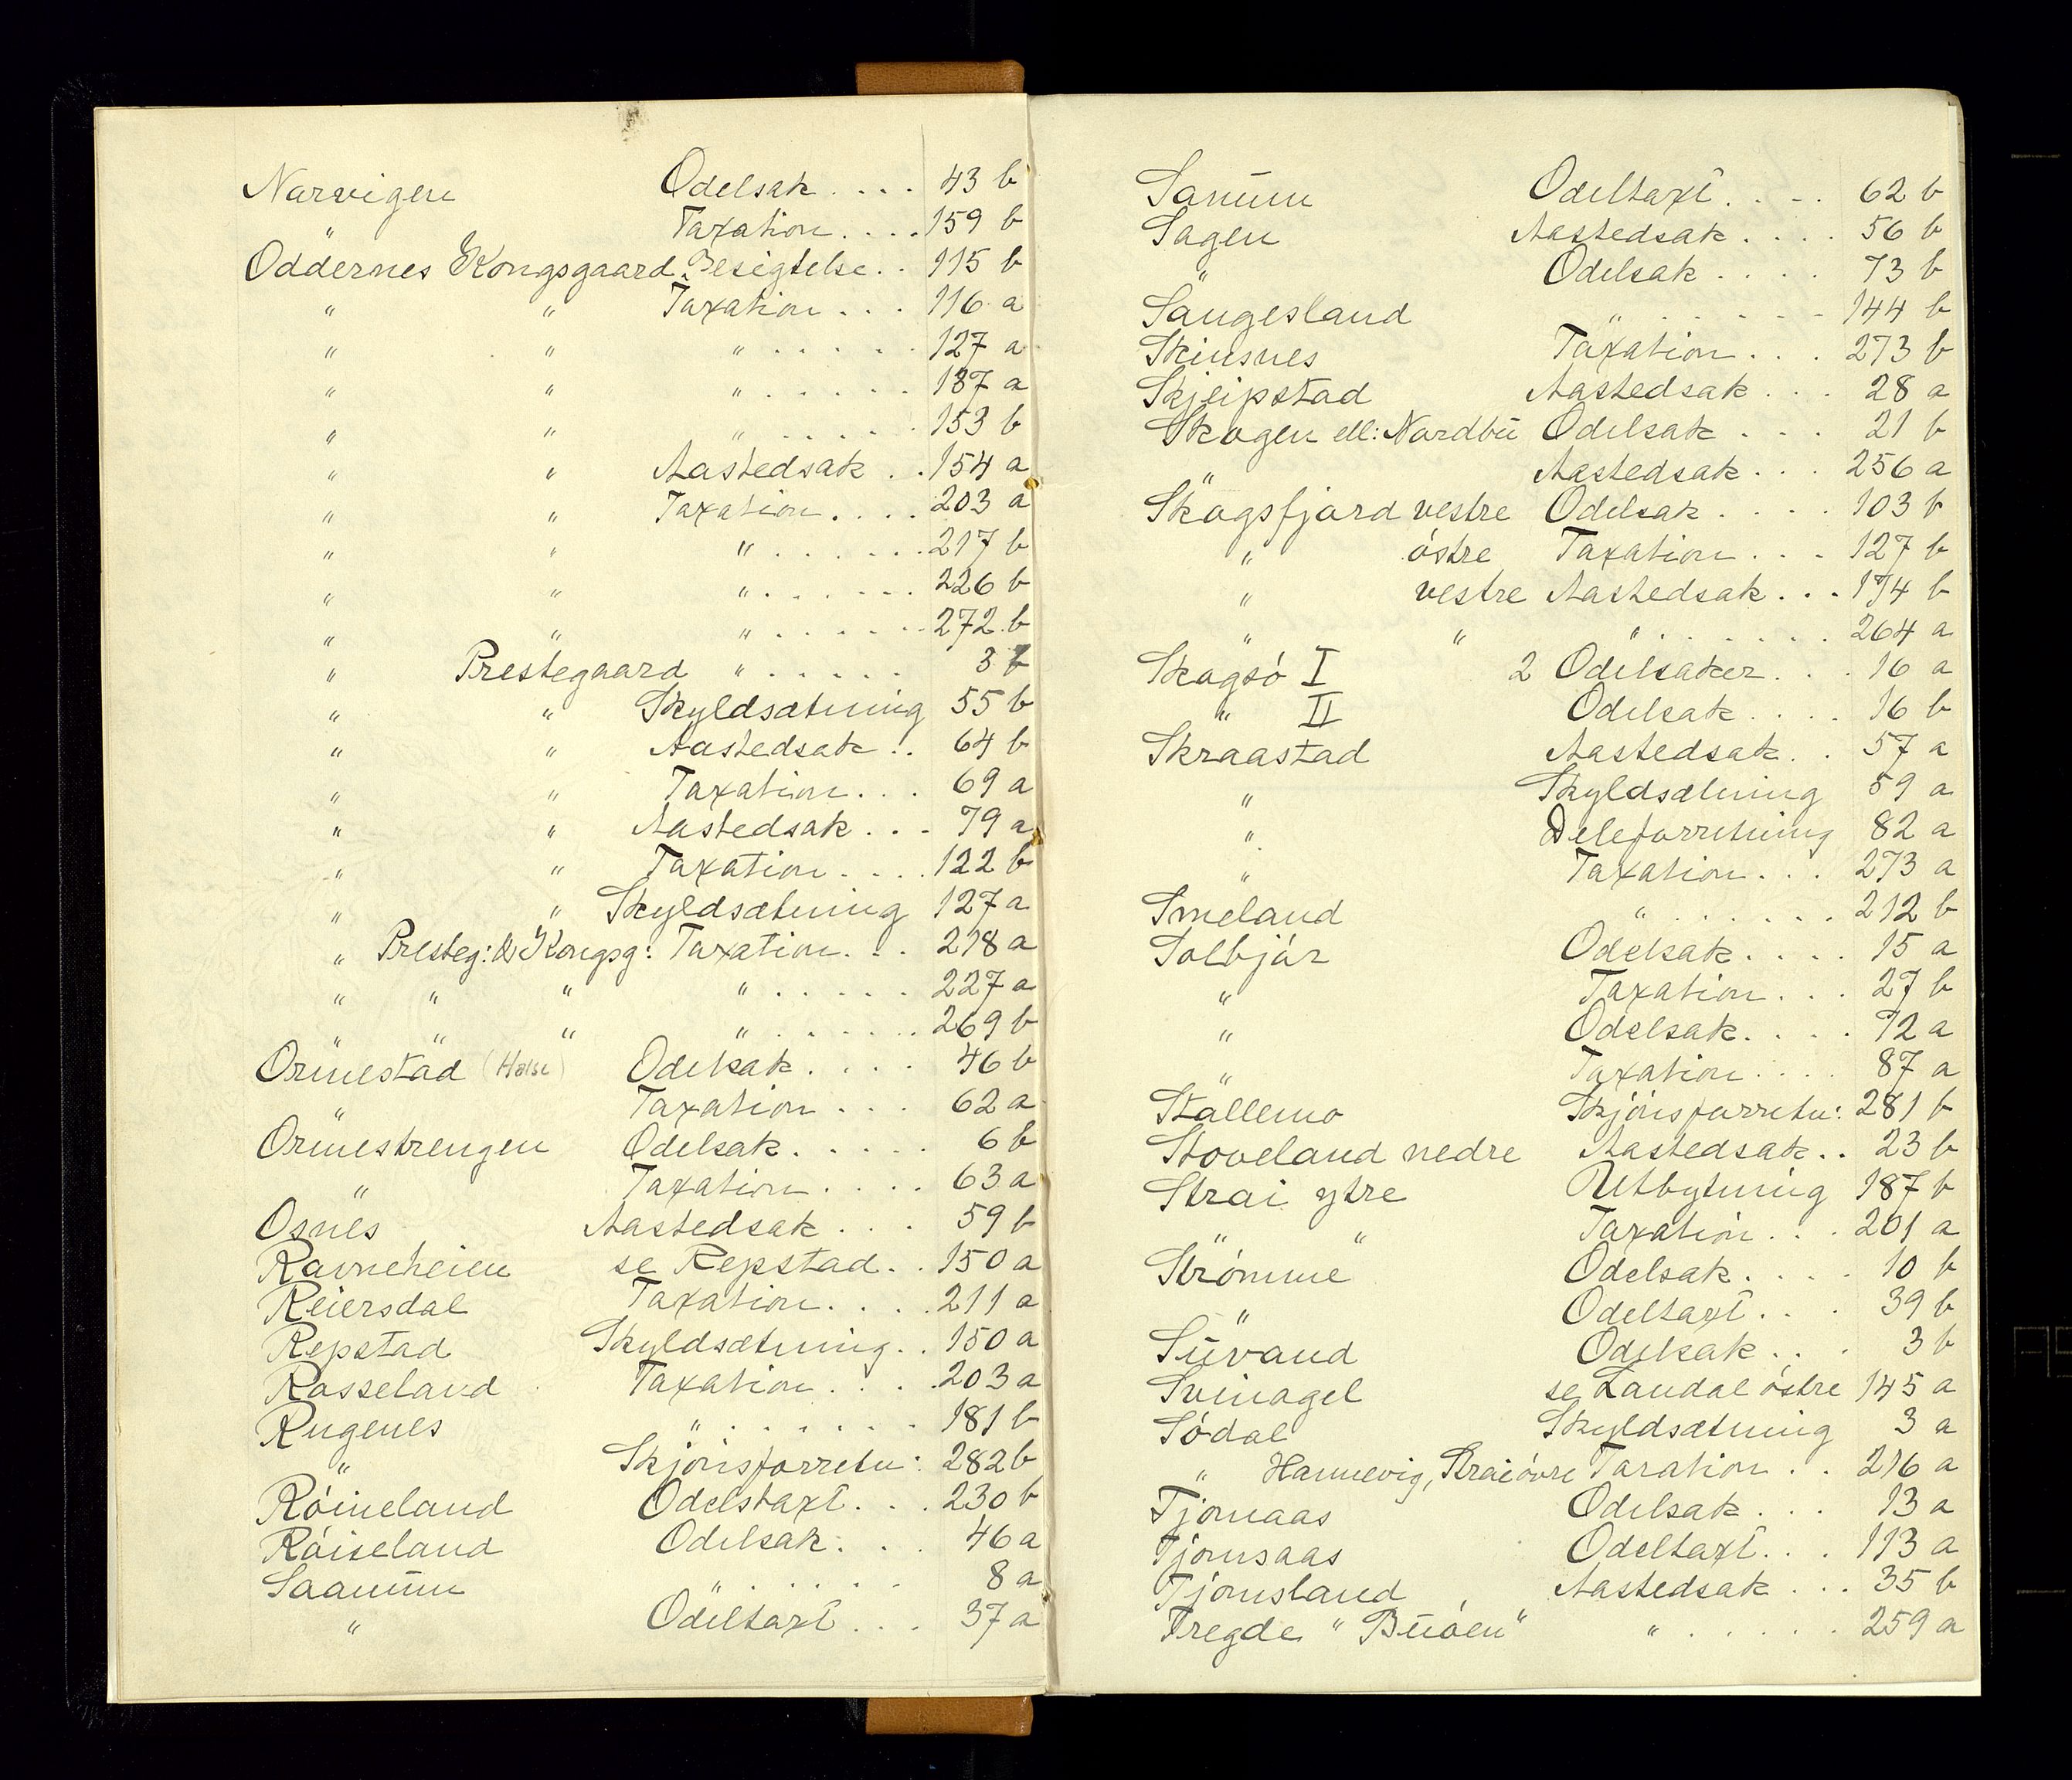 Narvigen Odelsak .... 43 b
" Taxation .... 159 b
Oddernes Kongsgaard Besigtelse .. 115 b
" " Taxation ... 116 a
" " " ..... 127 a
" " " ...... 137 a
" " " ..... 153 b
" " Aastedsak .. 154 a
" " Taxation .... 203 a
" " " ...... 217 b
" " " ...... 226 b
" " " ...... 272 b
" Prestegaard " ..... 3 b
" " Skyldsætning 55 b
" " Aastedsak .. 64 b
" " Taxation ... 69 a
" " Aastedsak ... 79 a
" " Taxation .... 122 b
" " Skyldsætning 127 a
" Presteg: & Kongsg: Taxation ... 218 a
" " " " ..... 227 a
" " " " ...... 269 b
Ormestad (Halse) Odelsak .... 46 b
" Taxation ... 62 a
Ormestrengen Odelsak ..... 6 b
" Taxation .... 63 a
Osnes Aastedsak ... 59 b
Ravneheien se Repstad .. 150 a
Reiersdal Taxation .... 211 a
Repstad Skyldsætning .. 150 a
Rosseland Taxation .... 203 a
Rugenes " ...... 181 b
" Skjönsforretn: 282 b
Röineland Odelstaxt ... 230 b
Röiseland Odelsak ... 46 a
Saanum " ..... 8 a
" Odeltaxt ... 37 a
Sanum Odeltaxt .... 62 b
Sagen Aastedsak .... 56 b
" Odelsak .... 73 b
Sangesland " ...... 144 b
Skinsnes Taxation ... 273 b
Skjeipstad Aastedsak ... 28 a
Skogen ell: Nordbü Odelsak ... 21 b
" Aastedsak ... 256 a
Skogsfjord vestre Odelsak .... 103 b
" östre Taxation ... 127 b
" vestre Aastedsak ... 174 b
" " " ...... 264 a
Skogsö I 2 Odelsaker ... 16 a
" II Odelsak .... 16 b
Skraastad Aastedsak .. 57 a
" Skyldsætning 59 a
" Deleforretning 82 a
" Taxation ... 273 a
Smeland " ...... 212 b
Solbjör Odelsak .... 15 a
" Taxation ... 27 b
" Odelsak .... 72 a
" Taxation .... 87 a
Stallemo Skjönsforretn: 281 b
Stoveland nedre Aastedsak .. 23 b
Strai ytre Utbytning 187 b
" " Taxation ... 201 a
Strömme Odelsak .... 10 b
" Odeltaxt ... 39 b
Süvand Odelsak ... 3 b
Svinagel se Landal östre 145 a
Södal Skyldsætning 3 a
" Hannevig, Strai övre Taxation .. 216 a
Tjomaas Odelsak ... 13 a
Tjomsaas Odeltaxt ... 113 a
Tjomsland Aastedsak ... 35 b
Tregde "Büöen" " ..... 259 a